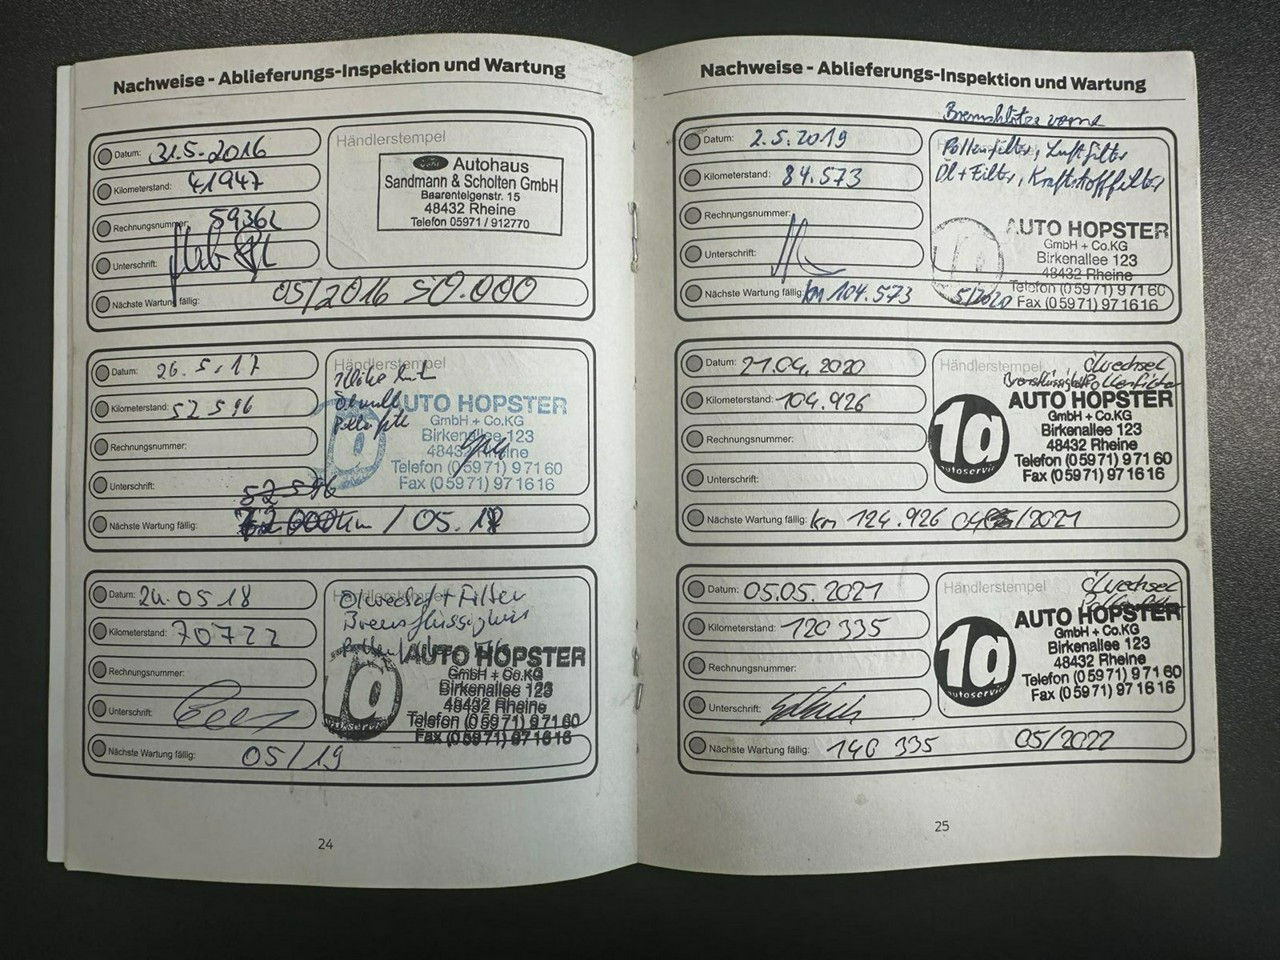 Nachweise - Ablieferungs-Inspektion und Wartung
Datum: 31.5.2016
Kilometerstand: 41947
Rechnungsnummer: 59362
Unterschrift:
Nächste Wartung fällig: 05/2016 50.000
Händlerstempel
Ford Autohaus
Sandmann & Scholten GmbH
Baarentelgenstr. 15
48432 Rheine
Telefon 05971 / 912770
Datum: 26.5.17
Kilometerstand: 52596
Rechnungsnummer:
Unterschrift:
52596
Nächste Wartung fällig: 72000km / 05.18
Händlerstempel
AUTO HOPSTER
GmbH + Co.KG
Birkenallee 123
48432 Rheine
Telefon (05971) 97160
Fax (05971) 971616
Datum: 24.05.18
Kilometerstand: 70722
Rechnungsnummer:
Unterschrift:
Nächste Wartung fällig: 05/19
Händlerstempel
Ölwechsel + Filter
Bremsflüssigkeit
1a autoservice
AUTO HOPSTER
GmbH + Co.KG
Birkenallee 123
48432 Rheine
Telefon (05971) 97160
Fax (05971) 971616
24
Nachweise - Ablieferungs-Inspektion und Wartung
Bremsklötze vorne
Datum: 2.5.2019
Kilometerstand: 84.573
Rechnungsnummer:
Unterschrift:
Nächste Wartung fällig: km 104.573 5/2020
Pollenfilter, Luftfilter
Öl + Filter, Kraftstofffilter
AUTO HOPSTER
GmbH + Co.KG
Birkenallee 123
48432 Rheine
Telefon (05971) 97160
Fax (05971) 971616
Datum: 21.04.2020
Kilometerstand: 104.926
Rechnungsnummer:
Unterschrift:
Nächste Wartung fällig: km 124.926 04/2021
Händlerstempel
Ölwechsel
Bremsflüssigkeit Pollenfilter
1a autoservice
AUTO HOPSTER
GmbH + Co.KG
Birkenallee 123
48432 Rheine
Telefon (05971) 97160
Fax (05971) 971616
Datum: 05.05.2021
Kilometerstand: 120335
Rechnungsnummer:
Unterschrift:
Nächste Wartung fällig: 140 335 05/2022
Händlerstempel
Ölwechsel
1a autoservice
AUTO HOPSTER
GmbH + Co.KG
Birkenallee 123
48432 Rheine
Telefon (05971) 97160
Fax (05971) 971616
25